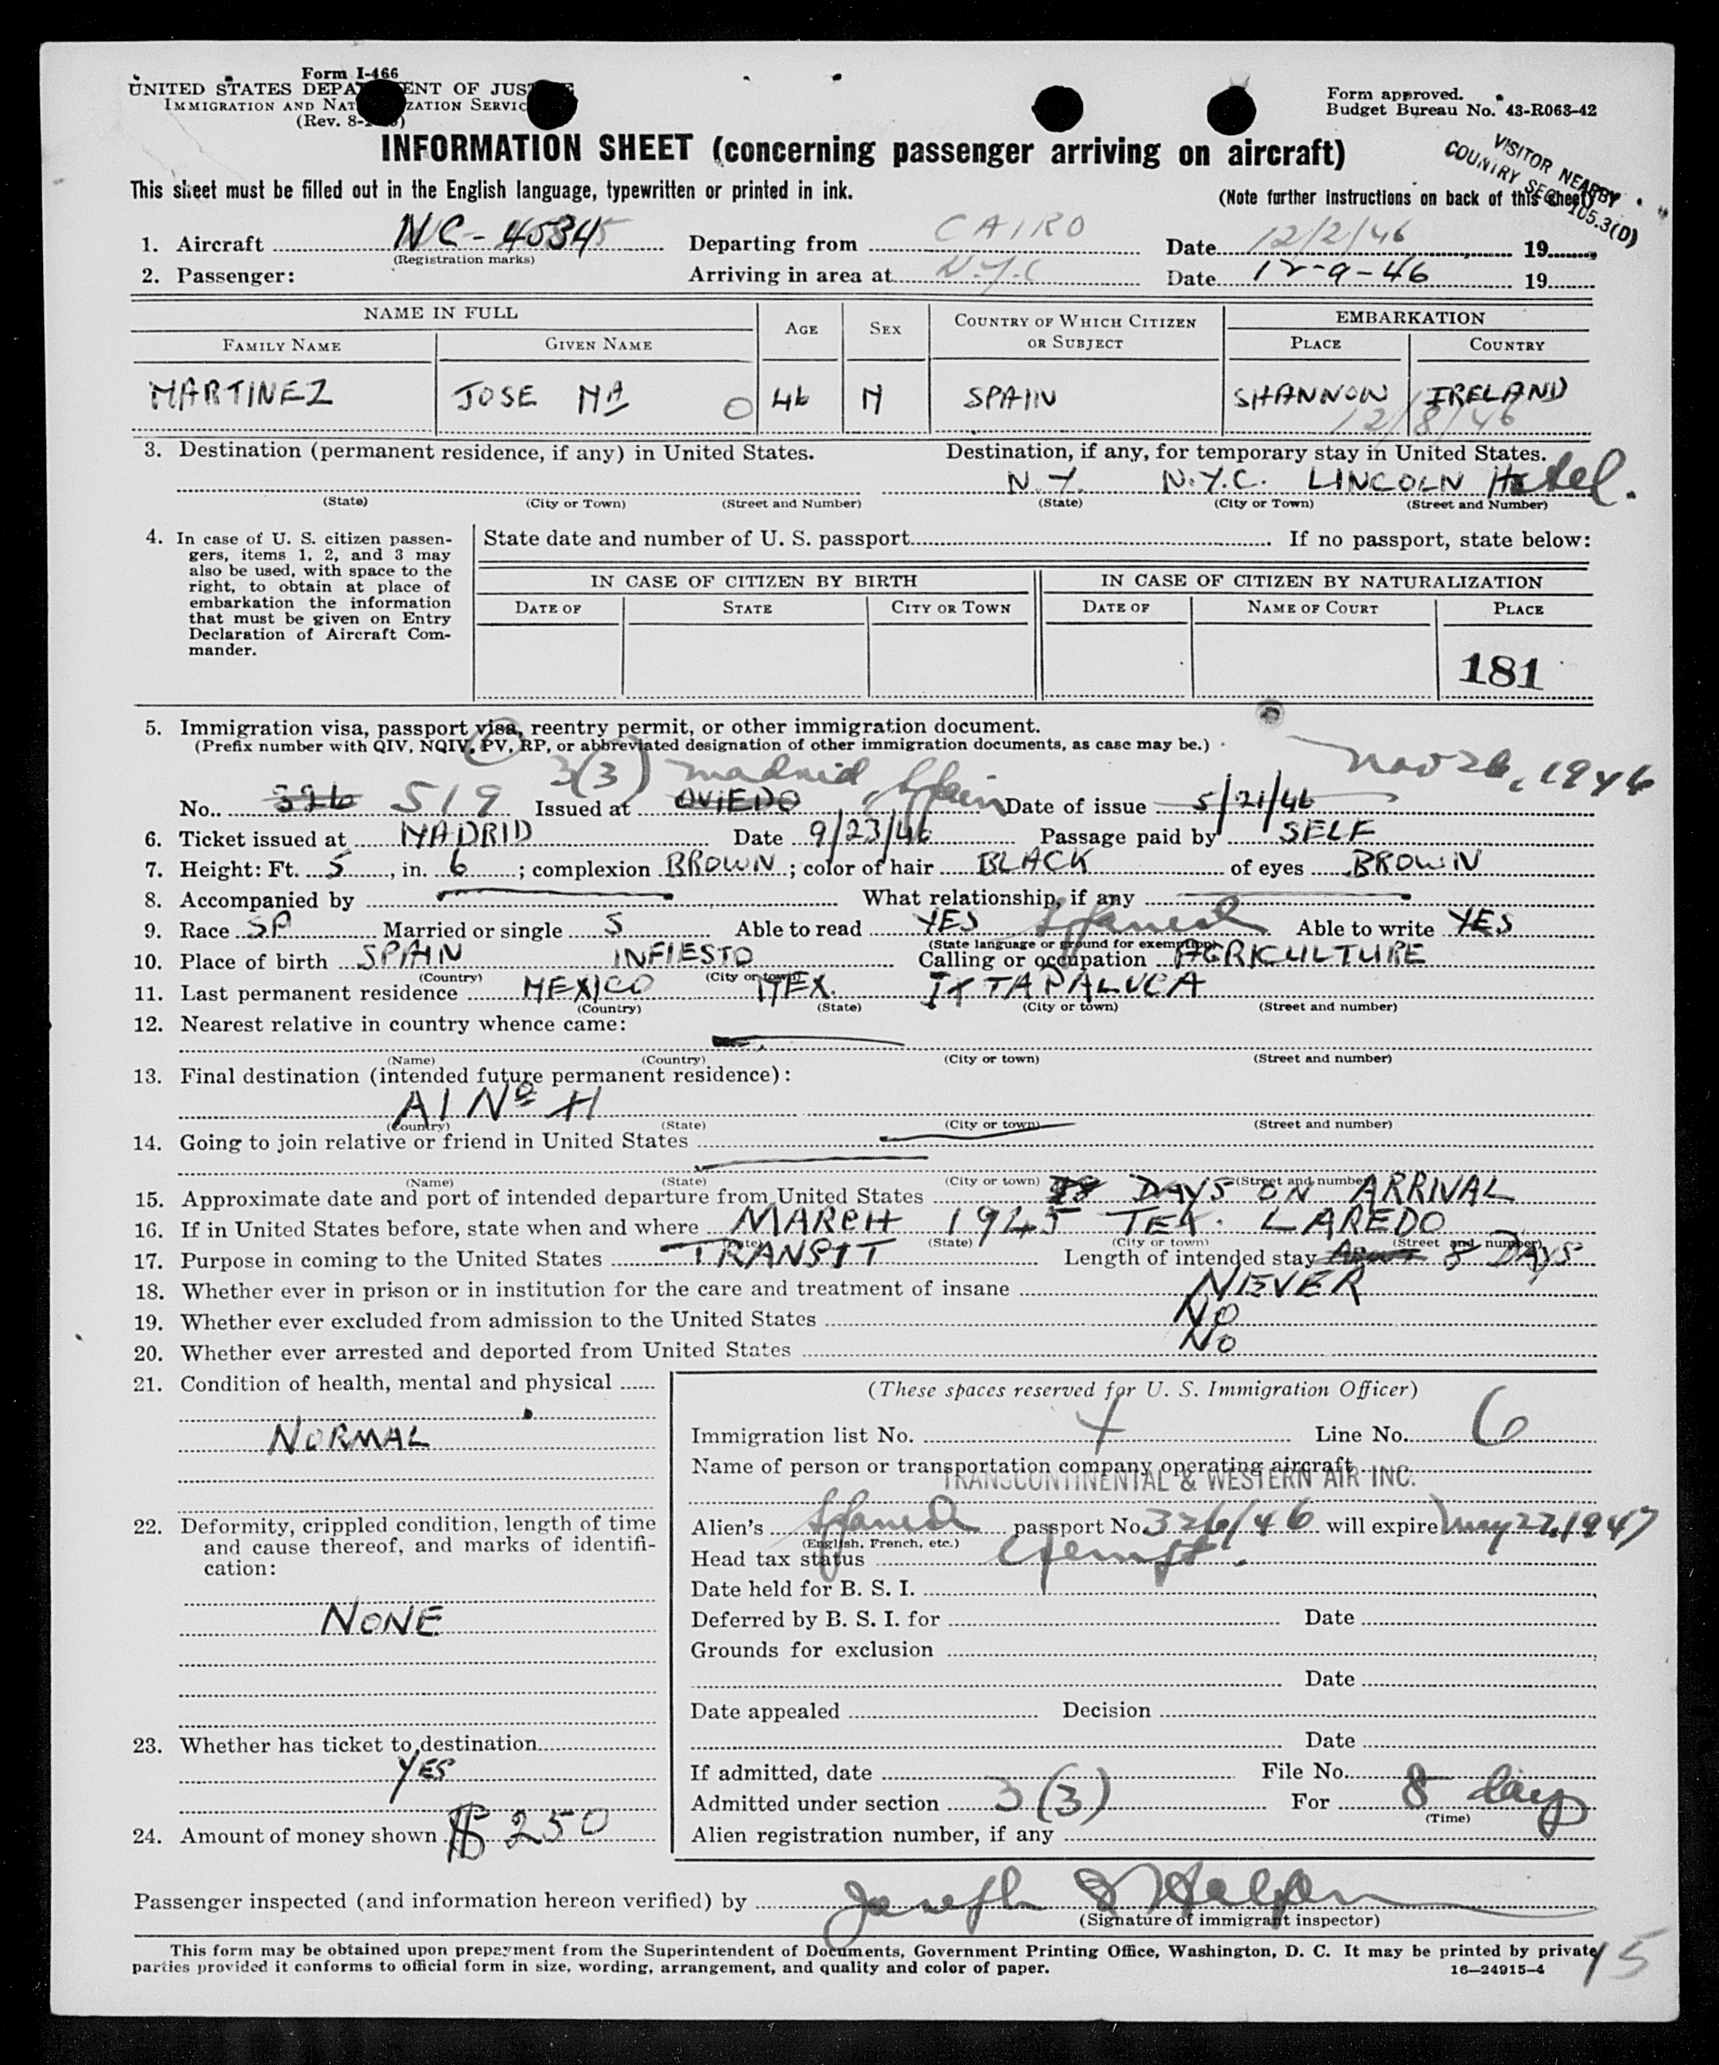 Form I-466
UNITED STATES DEPARTMENT OF JUSTICE
IMMIGRATION AND NATURALIZATION SERVICE
(Rev. 8-
Form approved.
Budget Bureau No. 43-R063-42
VISITOR NEARBY
COUNTRY SEC. 105.3(D)
INFORMATION SHEET (concerning passenger arriving on aircraft)
This sheet must be filled out in the English language, typewritten or printed in ink. (Note further instructions on back of this sheet)
1. Aircraft NC-45345 Departing from CAIRO Date 12/2/46 19
(Registration marks)
2. Passenger: Arriving in area at N.Y.C Date 12-9-46 19
NAME IN FULL AGE SEX COUNTRY OF WHICH CITIZEN OR SUBJECT EMBARKATION
FAMILY NAME GIVEN NAME PLACE COUNTRY
MARTINEZ JOSE Mª 0 46 M SPAIN SHANNON IRELAND
12/8/46
3. Destination (permanent residence, if any) in United States. Destination, if any, for temporary stay in United States.
N.Y. N.Y.C. LINCOLN Hotel.
(State) (City or Town) (Street and Number) (State) (City or Town) (Street and Number)
4. In case of U. S. citizen passen-
gers, items 1, 2, and 3 may
also be used, with space to the
right, to obtain at place of
embarkation the information
that must be given on Entry
Declaration of Aircraft Com-
mander.
State date and number of U. S. passport If no passport, state below:
IN CASE OF CITIZEN BY BIRTH IN CASE OF CITIZEN BY NATURALIZATION
DATE OF STATE CITY OR TOWN DATE OF NAME OF COURT PLACE
181
5. Immigration visa, passport visa, reentry permit, or other immigration document.
(Prefix number with QIV, NQIV, PV, RP, or abbreviated designation of other immigration documents, as case may be.)
3(3) Madrid, Spain Nov 26, 1946
No. 326 519 Issued at OVIEDO Date of issue 5/21/46
6. Ticket issued at MADRID Date 9/23/46 Passage paid by SELF
7. Height: Ft. 5, in. 6; complexion BROWN; color of hair BLACK of eyes BROWN
8. Accompanied by What relationship, if any
9. Race SP Married or single S Able to read YES Spanish Able to write YES
(State language or ground for exemption)
10. Place of birth SPAIN INFIESTO Calling or occupation AGRICULTURE
(Country) (City or town)
11. Last permanent residence MEXICO MEX. IXTAPALUCA
(Country) (State) (City or town) (Street and number)
12. Nearest relative in country whence came:
(Name) (Country) (City or town) (Street and number)
13. Final destination (intended future permanent residence):
AI Nº 11
(Country) (State) (City or town) (Street and number)
14. Going to join relative or friend in United States
(Name) (State) (City or town) (Street and number)
15. Approximate date and port of intended departure from United States DAYS ON ARRIVAL
16. If in United States before, state when and where MARCH 1945 TEX. LAREDO
(State) (City or town) (Street and number)
17. Purpose in coming to the United States TRANSIT Length of intended stay ABOUT 8 DAYS
18. Whether ever in prison or in institution for the care and treatment of insane NEVER
19. Whether ever excluded from admission to the United States NO
20. Whether ever arrested and deported from United States NO
21. Condition of health, mental and physical
NORMAL
22. Deformity, crippled condition, length of time
and cause thereof, and marks of identifi-
cation:
NONE
23. Whether has ticket to destination
YES
24. Amount of money shown $ 250
(These spaces reserved for U. S. Immigration Officer)
Immigration list No. Line No. 6
Name of person or transportation company operating aircraft
TRANSCONTINENTAL & WESTERN AIR INC.
Alien's Spanish passport No. 326/46 will expire May 22, 1947
(English, French, etc.)
Head tax status exempt.
Date held for B. S. I.
Deferred by B. S. I. for Date
Grounds for exclusion
Date
Date appealed Decision
Date
If admitted, date File No.
Admitted under section 3(3) For 8 days
(Time)
Alien registration number, if any
Passenger inspected (and information hereon verified) by Joseph Halpern
(Signature of immigrant inspector)
This form may be obtained upon prepayment from the Superintendent of Documents, Government Printing Office, Washington, D. C. It may be printed by private
parties provided it conforms to official form in size, wording, arrangement, and quality and color of paper. 16—24915-4
15